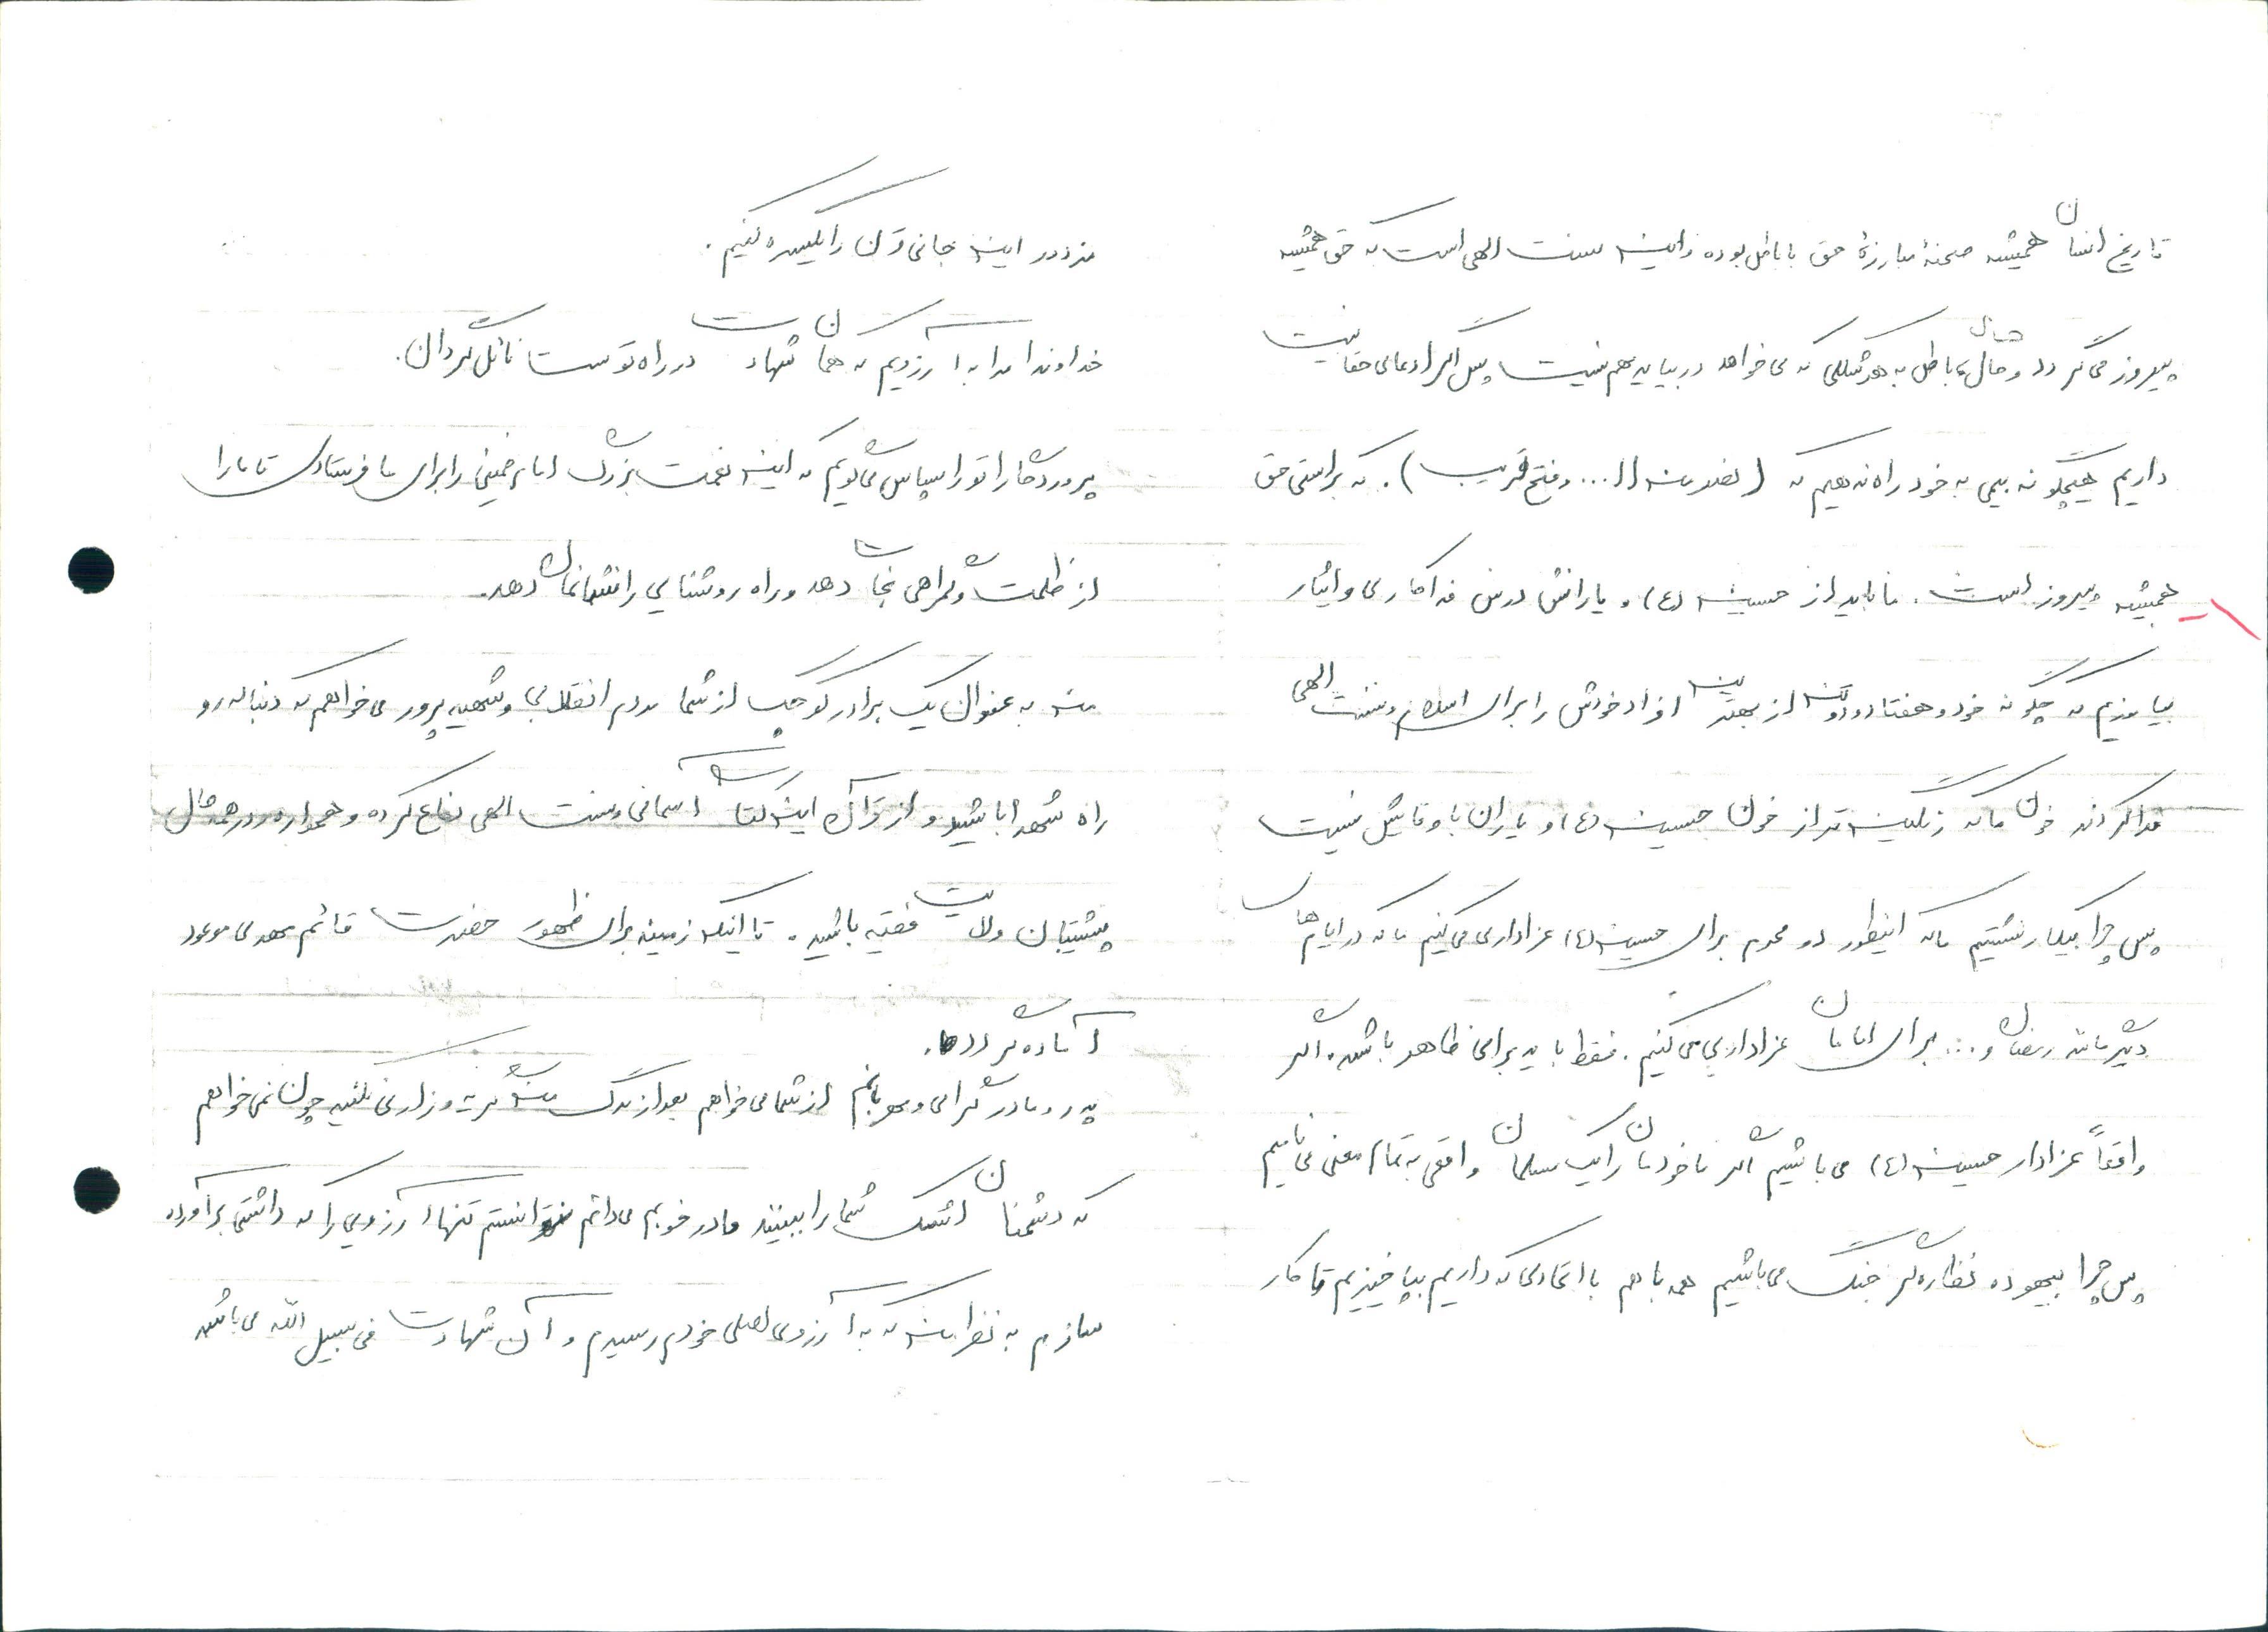 تاریخ انسان همیشه صحنهٔ مبارزهٔ حق با باطل بوده و این سنت الهی است که حق همیشه
پیروز می‌گردد و حال باطل به هر شکلی که می‌خواهد در بیاید مهم نیست پس اگر ادعای حقانیت
داریم هیچگونه بیمی به خود راه ندهیم که (نصر من ا... و فتح قریب). که براستی حق
همیشه پیروز است. ما باید از حسین (ع) و یارانش درس فداکاری و ایثار
بیاموزیم که چگونه خود و هفتاد و دو تن از بهترین افراد خودش را برای اسلام و سنت الهی
فدا کردند خون ما که رنگین‌تر از خون حسین (ع) و یاران با وفایش نیست
پس چرا بیکار نشستیم ما که اینطور در محرم برای حسین (ع) عزاداری می‌کنیم ما که در ایام‌های
دیگر مانند رمضان و ... برای امامان عزاداری می‌کنیم. فقط باید برای ظاهر باشد، اگر
واقعاً عزادار حسین (ع) می‌باشیم اگر ما خودمان را یک مسلمان واقعی به تمام معنی می‌نامیم
پس چرا بیهوده نظاره‌گر جنگ می‌باشیم همه با هم با اتحادی که داریم بپا خیزیم تا کار
مزدور این جانی قرن را یکسره کنیم.
خداوندا مرا به آرزویم که همان شهادت در راه توست نائل گردان.
پروردگارا تو را سپاس می‌گویم که این نعمت بزرگ امام خمینی را برای ما فرستادی تا ما را
از ظلمت و گمراهی نجات دهد و راه روشنایی را نشانمان دهد.
من به عنوان یک برادر کوچک از شما مردم انقلابی و شهید پرور می‌خواهم که دنباله‌رو
راه شهدا باشید و از قرآن این کتاب آسمانی و سنت الهی دفاع کرده و همواره در همه حال
پشتیبان ولایت فقیه باشید. تا اینکه زمینه برای ظهور حضرت قائم مهدی موعود
آماده گردد.
پدر و مادر گرامی و مهربانم از شما می‌خواهم بعد از مرگ من گریه و زاری نکنید چون نمی‌خواهم
که دشمنان اشک شما را ببینند مادر خوبم می‌دانم نتوانستم تنها آرزویی را که داشتی برآورده
سازم به نظر من که به آرزوی اصلی خودم رسیدم و آن شهادت فی سبیل الله می‌باشد